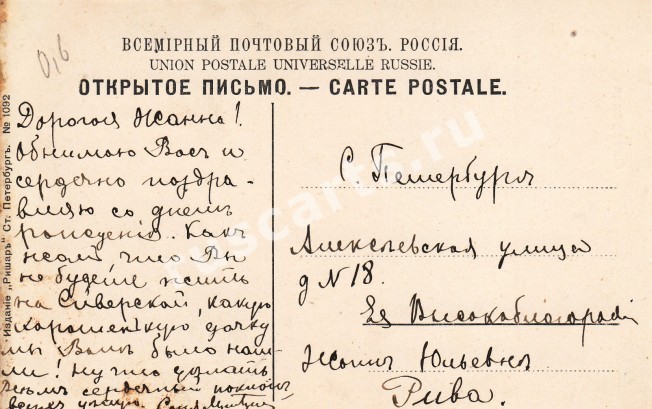 0,6
ВСЕМІРНЫЙ ПОЧТОВЫЙ СОЮЗЪ. РОССІЯ.
UNION POSTALE UNIVERSELLE RUSSIE.
ОТКРЫТОЕ ПИСЬМО. — CARTE POSTALE.
Изданіе „Ришаръ" Ст. Петербургъ. № 1092
Дорогая Жанна!
Обнимаю Васъ и
сердечно поздра-
вляю со днемъ
рожденія. Какъ
жаль что Вы
не будете жить
на Сиверской, какую
хорошенькую дачку
мы Вамъ было наш-
ли! Ну что дѣлать
сердечный поклонъ
С. Петербургъ
Алексѣевская улица
д N 18.
Ея Высокоблагородію
Жаннѣ Юльевнѣ
Рива.
ruscarts.ru